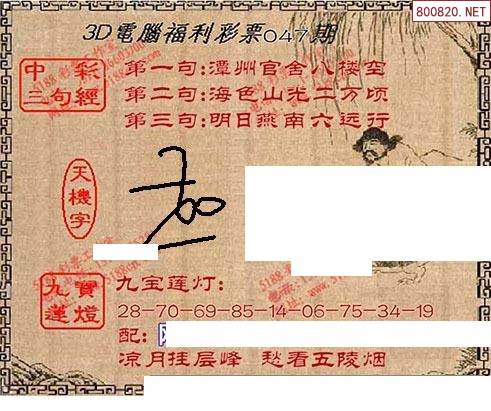 800820.NET
3D電腦福利彩票047期
中彩
三句經
第一句:潭州官舍八楼空
第二句:海色山光二万顷
第三句:明日燕南六远行
天機字
九寶
蓮燈
九宝莲灯:
28-70-69-85-14-06-75-34-19
配:
凉月挂层峰 愁看五陵烟